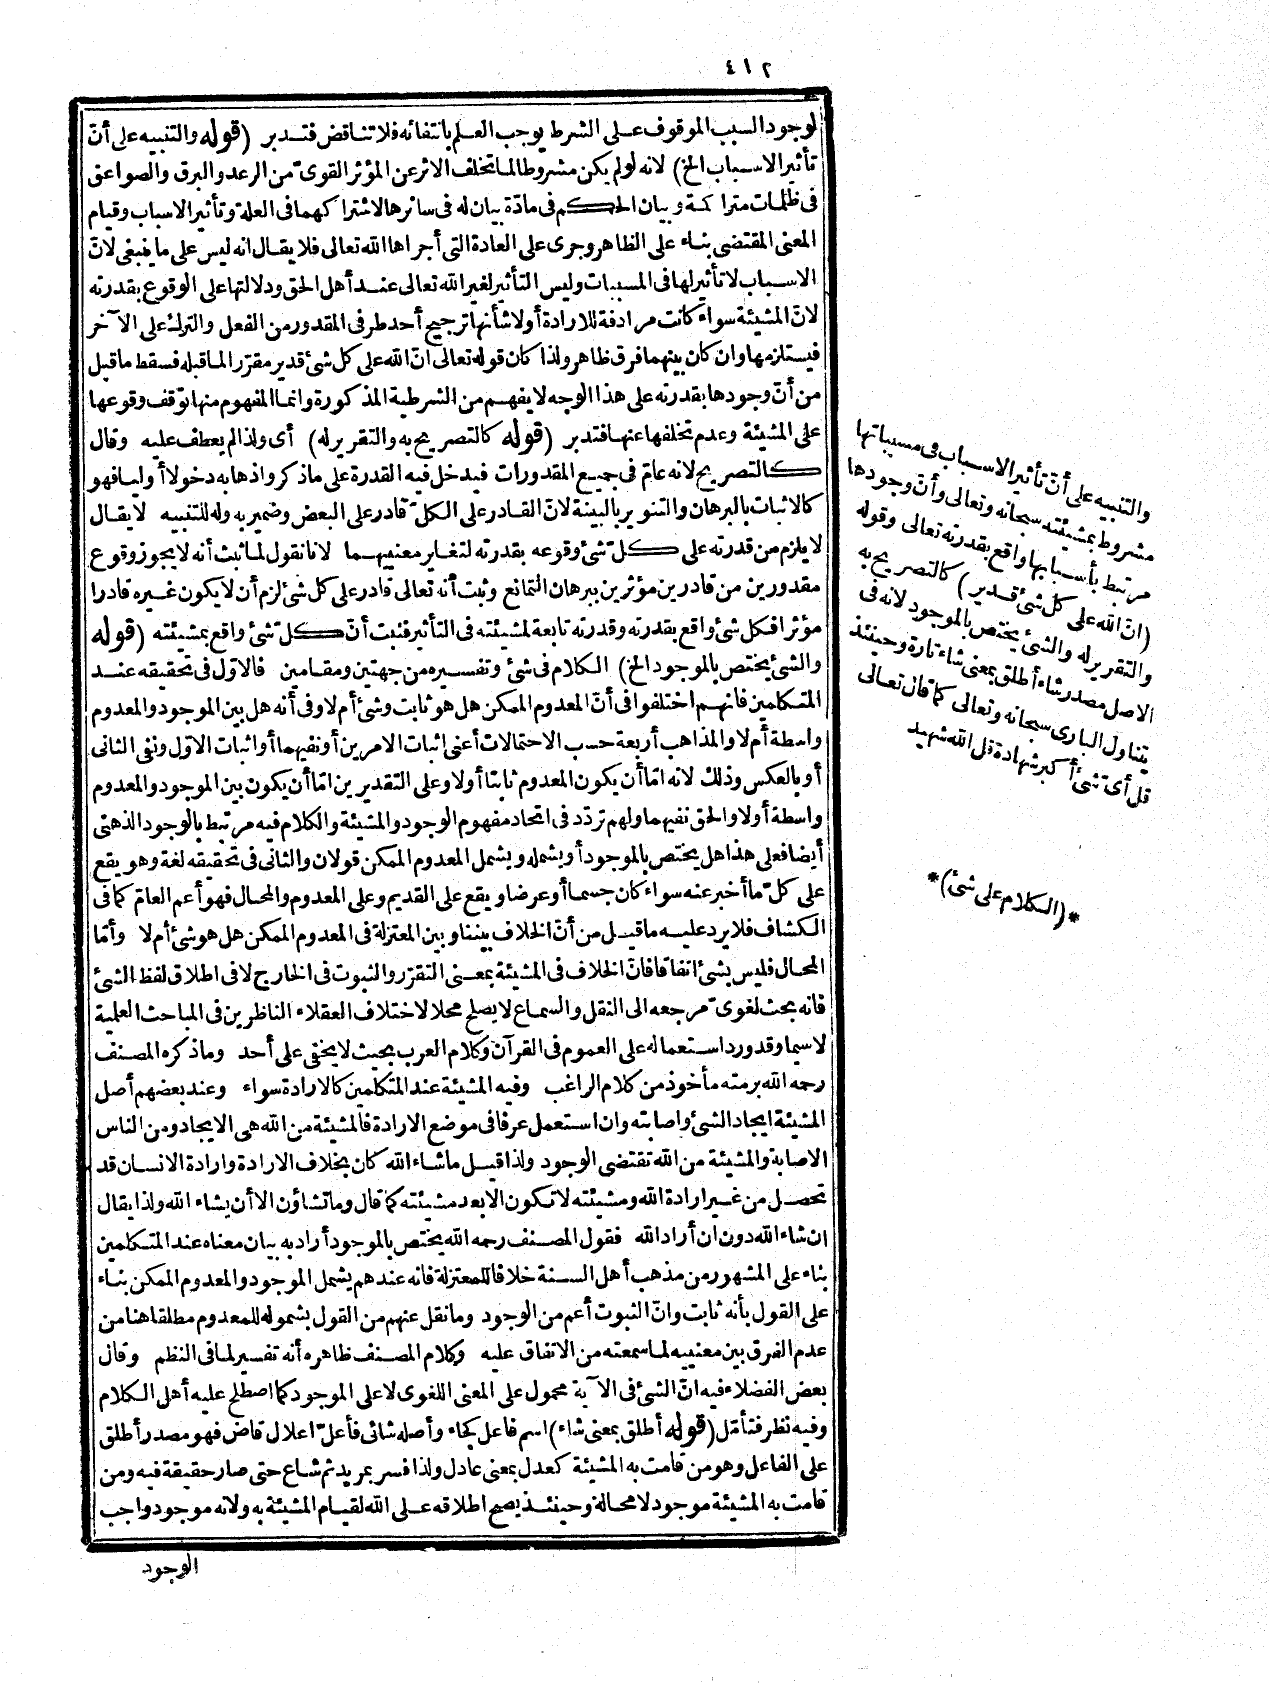 ٤١٢
لوجود السبب الموقوف على الشرط يوجب العلم بانتفائه فلا تناقض فتدبر (قوله والتنبيه على أنّ
تأثير الاسباب الخ) لانه لو لم يكن مشروطا لما تخلف الاثر عن المؤثر القوىّ من الرعد والبرق والصواعق
فى ظلمات متراكمة وبيان الحكم فى مادّة بيان له فى سائرها لاشتراكهما فى العلة وتأثير الاسباب وقيام
المعنى المقتضى بناء على الظاهر وجرى على العادة التى أجراها الله تعالى فلا يقال انه ليس على ما ينبغى لانّ
الاسباب لا تأثير لها فى المسببات وليس التأثير لغير الله تعالى عند أهل الحق ودلالتها على الوقوع بقدرته
لانّ المشيئة سواء كانت مرادفة للارادة أولا شأنها ترجيح أحد طرفى المقدور من الفعل والترك على الآخر
فيستلزمها وان كان بينهما فرق ظاهر ولذا كان قوله تعالى انّ الله على كل شئ قدير مقرّر الما قبله فسقط ما قيل
من أنّ وجودها بقدرته على هذا الوجه لا يفهم من الشرطية المذكورة وانما المفهوم منها توقف وقوعها
على المشيئة وعدم تخلفها عنها فتدبر (قوله كالتصريح به والتقرير له) أى ولذا لم يعطف عليه وقال
كالتصريح لانه عامّ فى جميع المقدورات فيدخل فيه القدرة على ما ذكر واذهابه دخولا أوليا فهو
كالاثبات بالبرهان والتنوير بالبينة لانّ القادر على الكلّ قادر على البعض وضمير به وله للتنبيه لا يقال
لا يلزم من قدرته على كلّ شئ وقوعه بقدرته لتغاير معنييهما لانا نقول لما ثبت أنه لا يجوز وقوع
مقدورين من قادرين مؤثرين ببرهان التمانع وثبت أنه تعالى قادر على كل شئ لزم أن لا يكون غيره قادرا
مؤثرا فكل شئ واقع بقدرته وقدرته تابعة لمشيئته فى التأثير فثبت أنّ كلّ شئ واقع بمشيئته (قوله
والشئ يختص بالموجود الخ) الكلام فى شئ وتفسيره من جهتين ومقامين فالاوّل فى تحقيقه عند
المتكلمين فانهم اختلفوا فى أنّ المعدوم الممكن هل هو ثابت وشئ أم لا وفى أنه هل بين الموجود والمعدوم
واسطة أم لا والمذاهب أربعة حسب الاحتمالات أعنى اثبات الامرين أو نفيهما أو اثبات الاوّل ونفى الثانى
أو بالعكس وذلك لانه امّا أن يكون المعدوم ثابتا أولا وعلى التقديرين امّا أن يكون بين الموجود والمعدوم
واسطة أولا والحق نفيهما ولهم تردّد فى اتحاد مفهوم الوجود والمشيئة والكلام فيه مرتبط بالوجود الذهنى
أيضا فعلى هذا هل يختص بالموجود أو يشمله ويشمل المعدوم الممكن قولان والثانى فى تحقيقه لغة وهو يقع
على كلّ ما أخبر عنه سواء كان جسما أو عرضا ويقع على القديم وعلى المعدوم والمحال فهو أعم العامّ كما فى
الكشاف فلا يرد عليه ما قيل من أنّ الخلاف بيننا وبين المعتزلة فى المعدوم الممكن هل هو شئ أم لا وأمّا
المحال فليس بشئ اتفاقا فانّ الخلاف فى المشيئة بمعنى التقرّر والثبوت فى الخارج لا فى اطلاق لفظ الشئ
فانه بحث لغوىّ مرجعه الى النقل والسماع لا يصلح محلا لاختلاف العقلاء الناظرين فى المباحث العلمية
لاسيما وقد ورد استعماله على العموم فى القرآن وكلام العرب بحيث لا يخفى على أحد وما ذكره المصنف
رحمه الله برمته مأخوذ من كلام الراغب وفيه المشيئة عند المتكلمين كالارادة سواء وعند بعضهم أصل
المشيئة ايجاد الشئ واصابته وان استعمل عرفا فى موضع الارادة فالمشيئة من الله هى الايجاد ومن الناس
الاصابة والمشيئة من الله تقتضى الوجود ولذا قيل ما شاء الله كان بخلاف الارادة وارادة الانسان قد
تحصل من غير ارادة الله ومشيئته لا تكون الا بعد مشيئته كما قال وما تشاؤن الا أن يشاء الله ولذا يقال
ان شاء الله دون ان أراد الله فقول المصنف رحمه الله يختص بالموجود أراد به بيان معناه عند المتكلمين
بناء على المشهور من مذهب أهل السنة خلافا للمعتزلة فانه عندهم يشمل الموجود والمعدوم الممكن بناء
على القول بأنه ثابت وانّ الثبوت أعم من الوجود وما نقل عنهم من القول بشموله للمعدوم مطلقا هنا من
عدم الفرق بين معنييه لما سمعته من الاتفاق عليه وكلام المصنف ظاهره أنه تفسير لما فى النظم وقال
بعض الفضلاء فيه انّ الشئ فى الآية محمول على المعنى اللغوى لا على الموجود كما اصطلح عليه أهل الكلام
وفيه نظر فتأمّل (قوله أطلق بمعنى شاء) اسم فاعل كجاء وأصله شائى فأعلّ اعلال قاض فهو مصدر أطلق
على الفاعل وهو من قامت به المشيئة كعدل بمعنى عادل ولذا فسر بمريد ثم شاع حتى صار حقيقة فيه ومن
قامت به المشيئة موجود لا محالة وحينئذ يصح اطلاقه على الله لقيام المشيئة به ولانه موجود واجب
الوجود
والتنبيه على أنّ تأثير الاسباب فى مسبباتها
مشروط بمشيئته سبحانه وتعالى وأنّ وجودها
مرتبط بأسبابها واقع بقدرته تعالى وقوله
(انّ الله على كل شئ قدير) كالتصريح به
والتقرير له والشئ يختص بالموجود لانه فى
الاصل مصدر شاء أطلق بمعنى شاء تارة وحينئذ
يتناول البارى سبحانه وتعالى كما قال تعالى
قل أىّ شئ أكبر شهادة قل الله شهيد
*(الكلام على شئ)*